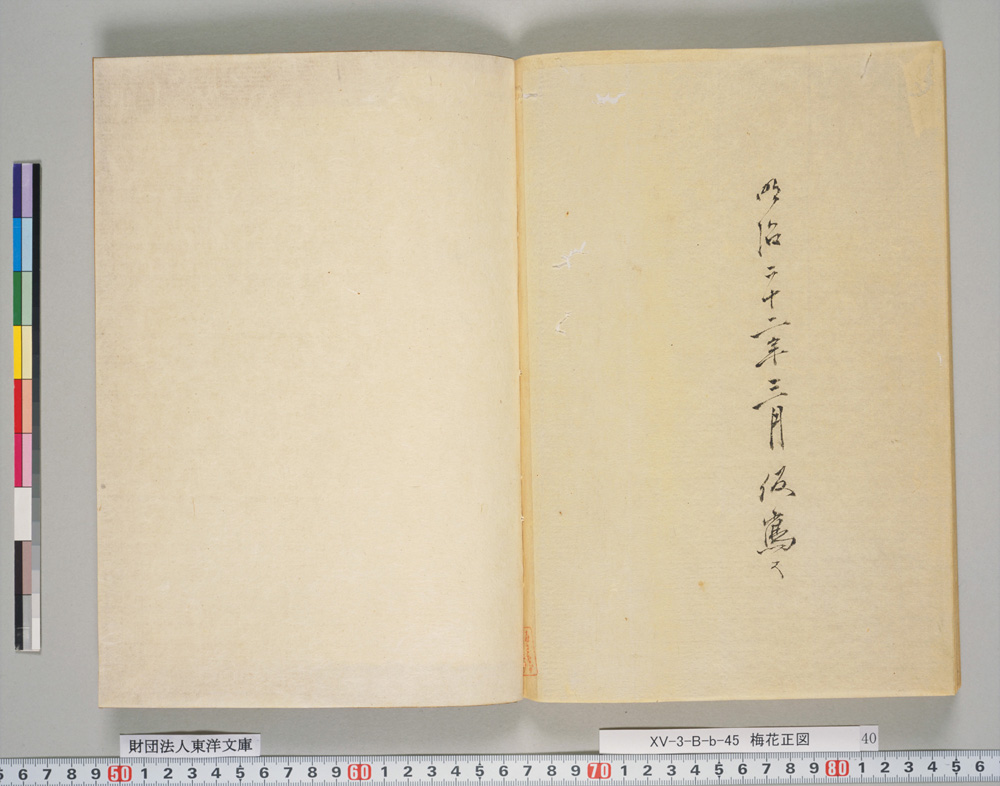 明治二十二年三月仮寫ス
財団法人東洋文庫
XV-3-B-b-45 梅花正図
40
5 6 7 8 9 50 1 2 3 4 5 6 7 8 9 60 1 2 3 4 5 6 7 8 9 70 1 2 3 4 5 6 7 8 9 80 1 2 3 4 5 6